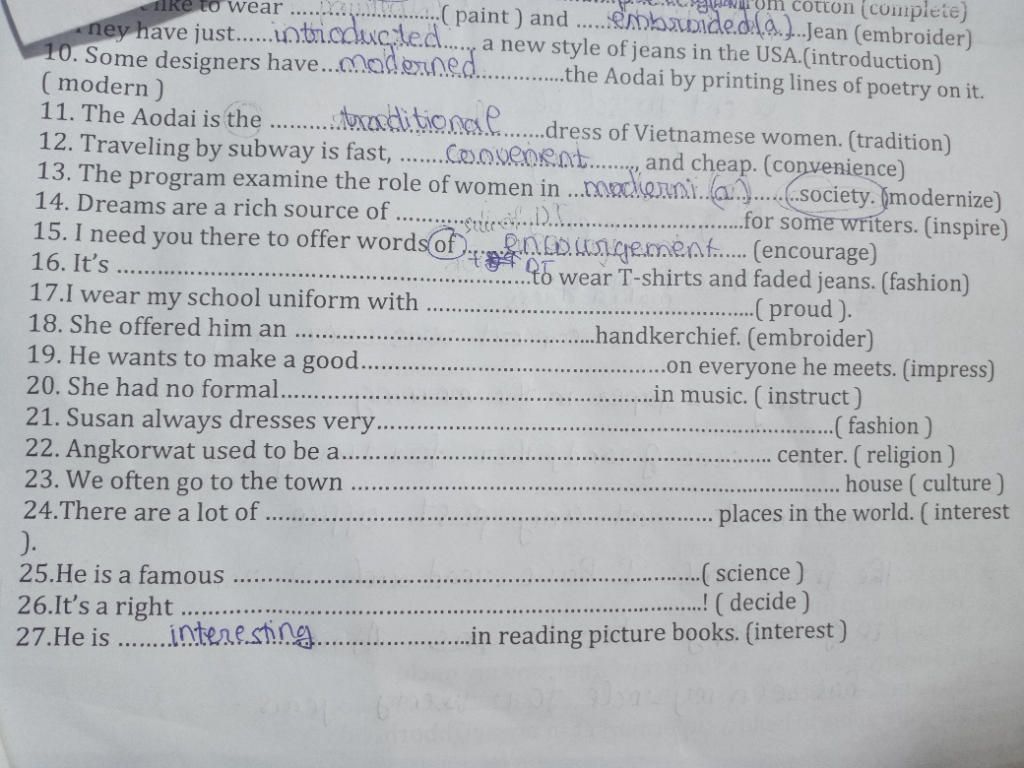 like to wear ....................( paint ) and ......embroided(a.)..Jean (embroider)
hey have just......introducted......, a new style of jeans in the USA.(introduction)
10. Some designers have...moderned...............the Aodai by printing lines of poetry on it.
( modern )
11. The Aodai is the ............traditional.........dress of Vietnamese women. (tradition)
12. Traveling by subway is fast, .......convenient........, and cheap. (convenience)
13. The program examine the role of women in ...moderni.(a.)........society. (modernize)
14. Dreams are a rich source of ........................................for some writers. (inspire)
15. I need you there to offer words of .....encoungement...... (encourage)
16. It's ........................................to wear T-shirts and faded jeans. (fashion)
17.I wear my school uniform with ........................................( proud ).
18. She offered him an ........................................handkerchief. (embroider)
19. He wants to make a good........................................on everyone he meets. (impress)
20. She had no formal........................................in music. ( instruct )
21. Susan always dresses very........................................( fashion )
22. Angkorwat used to be a........................................ center. ( religion )
23. We often go to the town ........................................ house ( culture )
24.There are a lot of ........................................ places in the world. ( interest
).
25.He is a famous ........................................( science )
26.It's a right ........................................! ( decide )
27.He is .......interesting....................in reading picture books. (interest )